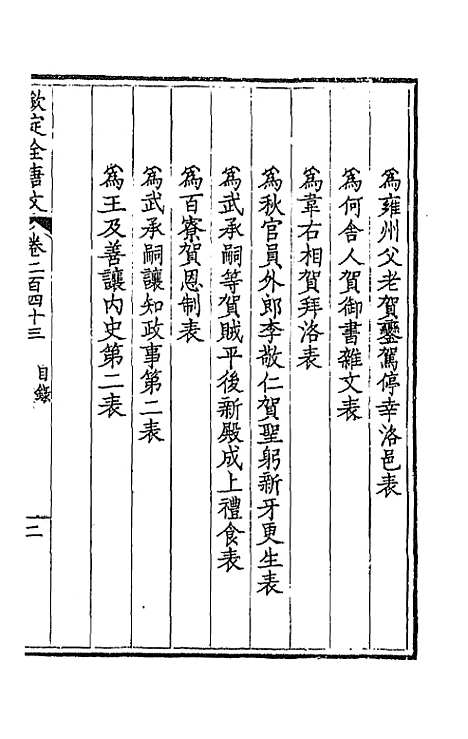 為雍州父老賀鑾駕停幸洛邑表
為何舍人賀御書雜文表
為韋右相賀拜洛表
為秋官員外郎李敬仁賀聖躬新牙更生表
為武承嗣等賀賊平後新殿成上禮食表
為百寮賀恩制表
為武承嗣讓知政事第二表
為王及善讓內史第二表
欽定全唐文 卷二百四十三 目錄 二